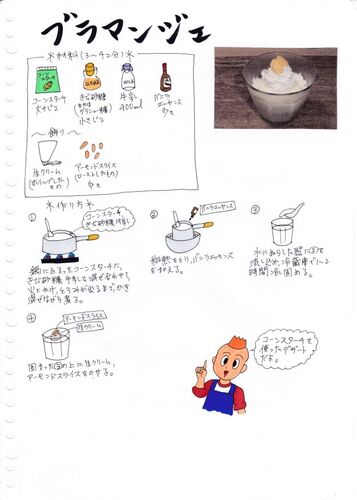 ブラマンジェ
＊材料(3〜4コ分)＊
コーンスターチ
コーンスターチ
大さじ2
きび砂糖
(または
グラニュー糖)
小さじ2
MILK
牛乳
200ml
バニラ
エッセンス
少々
〜飾り〜
生クリーム
(ホイップしたもの)
アーモンドスライス
(ローストしたもの)
少々
＊作り方＊
①
コーンスターチ
きび砂糖 牛乳
鍋にふるったコーンスターチ、
きび砂糖、牛乳を入れて混ぜ合わせ、
火にかけ、とろみが出るまでかき
混ぜながら煮る。
②
バニラエッセンス
粗熱をとり、バニラエッセンス
を加える。
③
水にぬらした器に②を
流し込み、冷蔵庫で1〜2
時間冷し固める。
④
アーモンドスライス
生クリーム
固まった③の上に生クリーム、
アーモンドスライスをのせる。
コーンスターチを
使ったデザート
だよ。